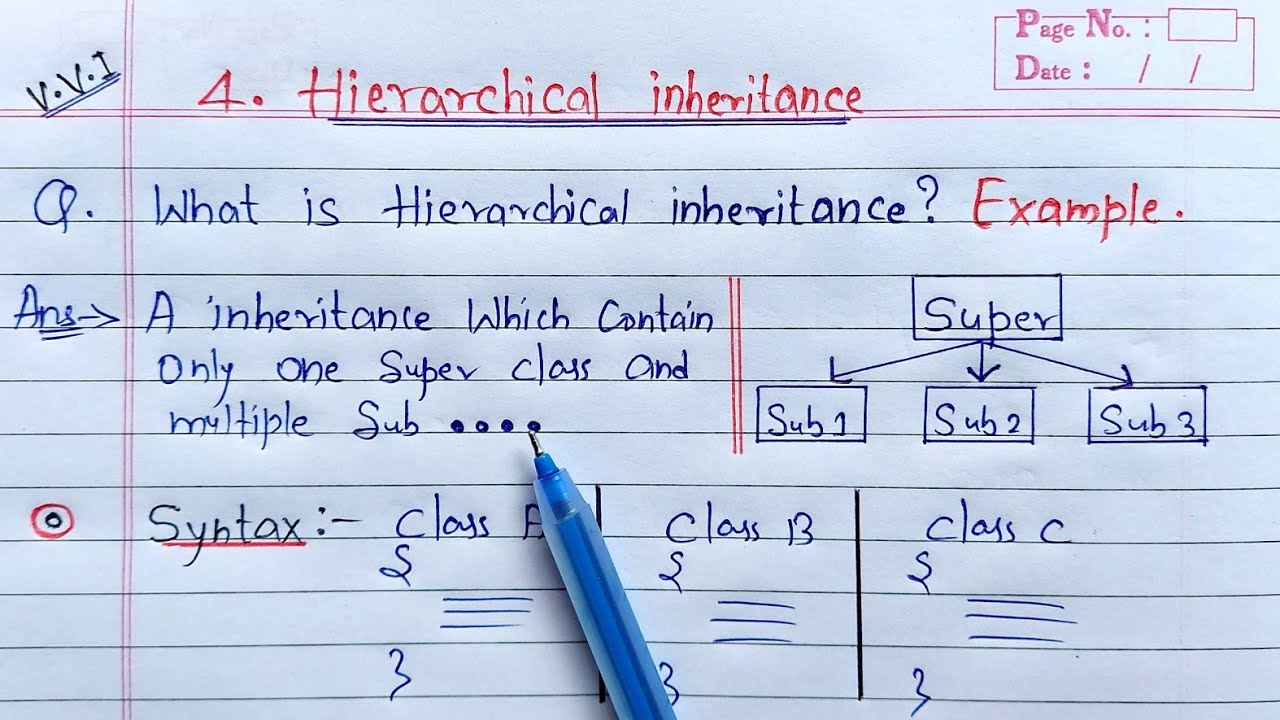 Page No. :
Date : / /
V.V.I
4. Hierarchical inheritance
Q. What is Hierarchical inheritance? Example.
Ans→ A inheritance Which Contain
Only one Super class and
multiple Sub ••••
Super
Sub 1 Sub 2 Sub 3
Syntax:- Class Class B Class C
{ { {
} } }